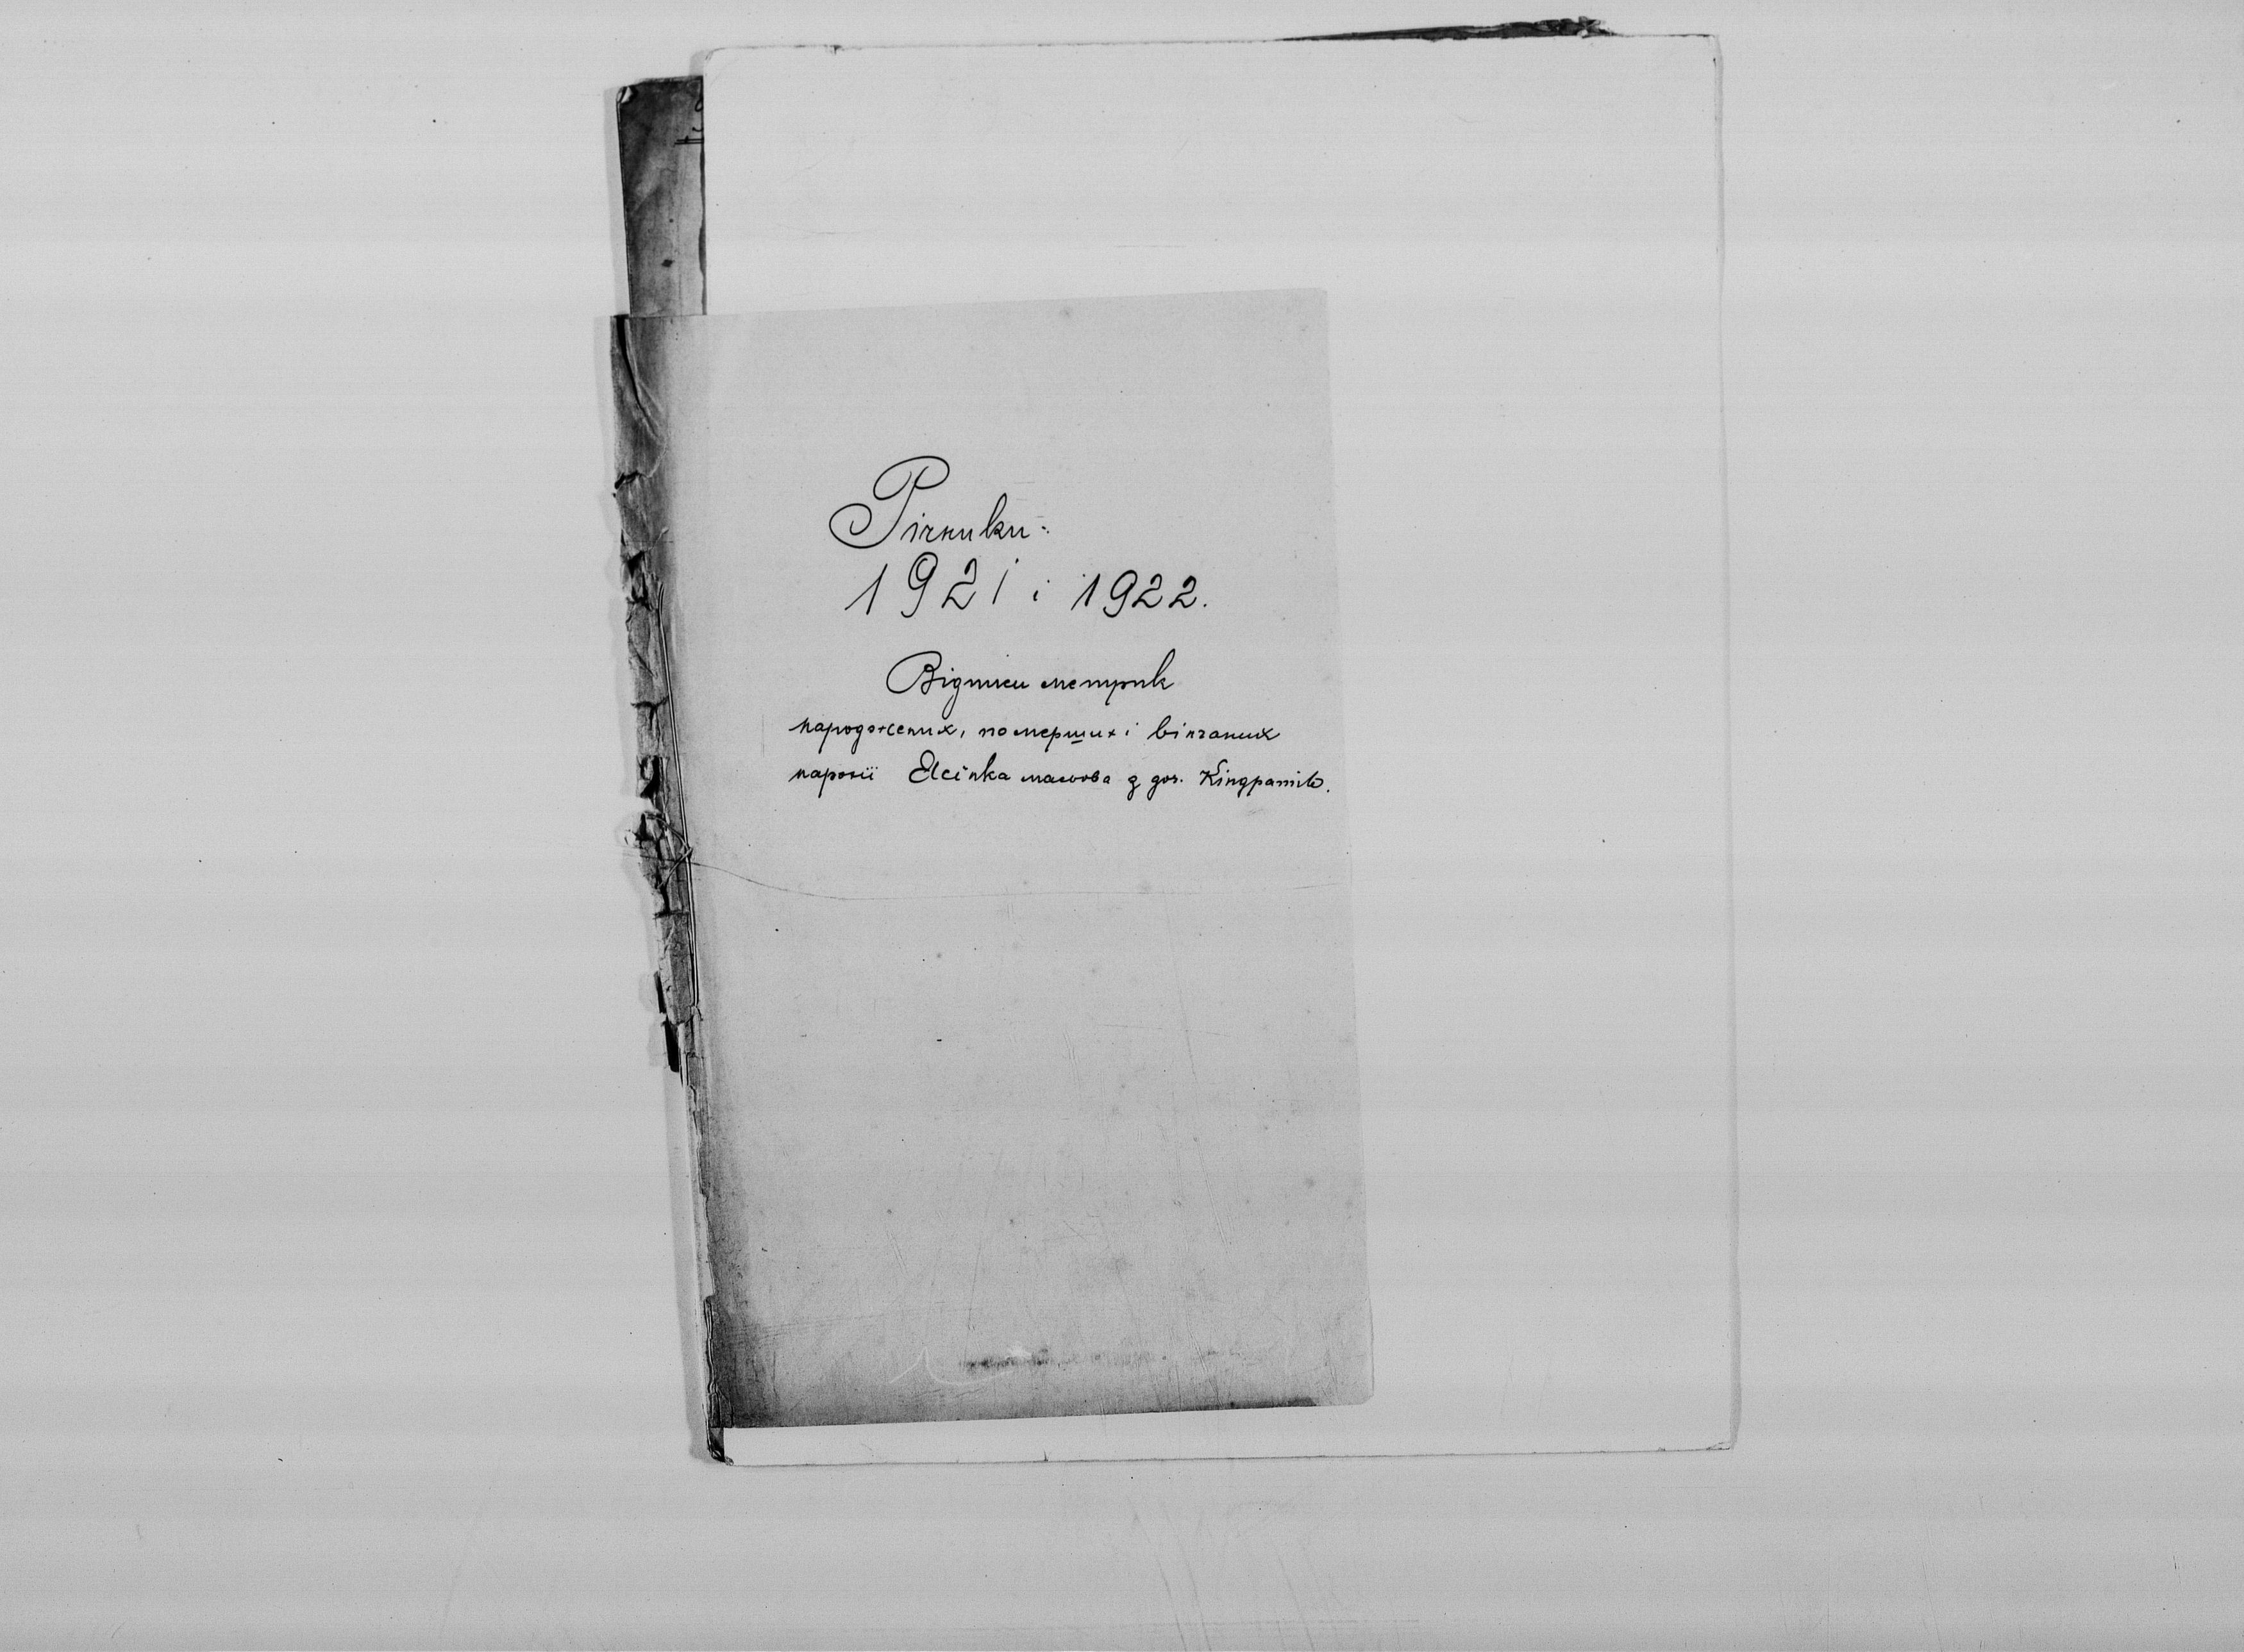 Річники:
1921 і 1922.
Відписи метрик
народжених, померших і вінчаних
парохії Ясінка масьова з дох. Кіндратів.